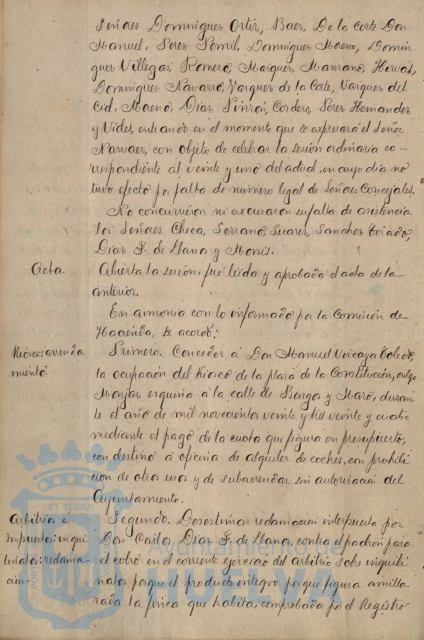 Señores Dominguez Ortiz, Baer, De la Corte Don
Manuel, Perez Pomil, Dominguez Maeno, Domin
guez Villegas, Romero, Marquez Manzano, Hervás,
Dominguez Navarro, Vazquez de la Corte, Vazquez del
Cid, Maeno, Diaz Pinzón, Cordero, Perez Hernandez
y Vides, entrando en el momento que se expresará el Señor
Narvaez, con objeto de celebrar la sesión ordinaria co-
rrespondiente al veinte y uno del actual, en cuyo dia no
tuvo efecto por falta de número legal de Señores Concejales.
No concurrieron ni excusaron su falta de asistencia
los Señores Checa, Serrano, Suarez, Sanchez
Diaz F. de Llano y Monís.
Acta.
Abierta la sesion, fué leida y aprobada el acta de la
anterior.
En armonia con lo informado por la Comision de
Hacienda, se acordó:
Kiosco: arrenda
miento
Primero. Conceder á Don Manuel Vizcaya Toledo,
la ocupación del Kiosco de la plaza de la Constitución,
esquina á la calle de Burgos y Mazo, duran
te el año de mil novecientos veinte y tres veinte y cuatro
mediante el pago de la cuota que figura en presupuesto,
con destino á oficina de alquiler de coches, con prohibi
cion de otro uso y de subarrendar sin autorización del
Ayuntamiento.
Arbitrios é
impuestos: inqui
linato: reclama-
cion.
Segundo. Desestimar reclamacion interpuesta por
Don Carlos Diaz F. de Llano, contra el padrón para
el cobro en el corriente ejercicio del arbitrio sobre inquili
nato, porque el producto integro por que figura amilla
rada la finca que habita, comprobada por el Registro
ET TERRA
Ayuntamiento de
HUELVA